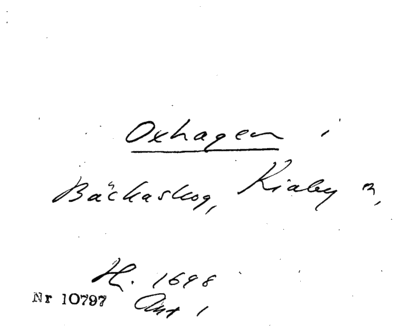 Oxhagen i
Bäckaskog, Kiaby n,
H. 1698
Nr 10797 Ant 1